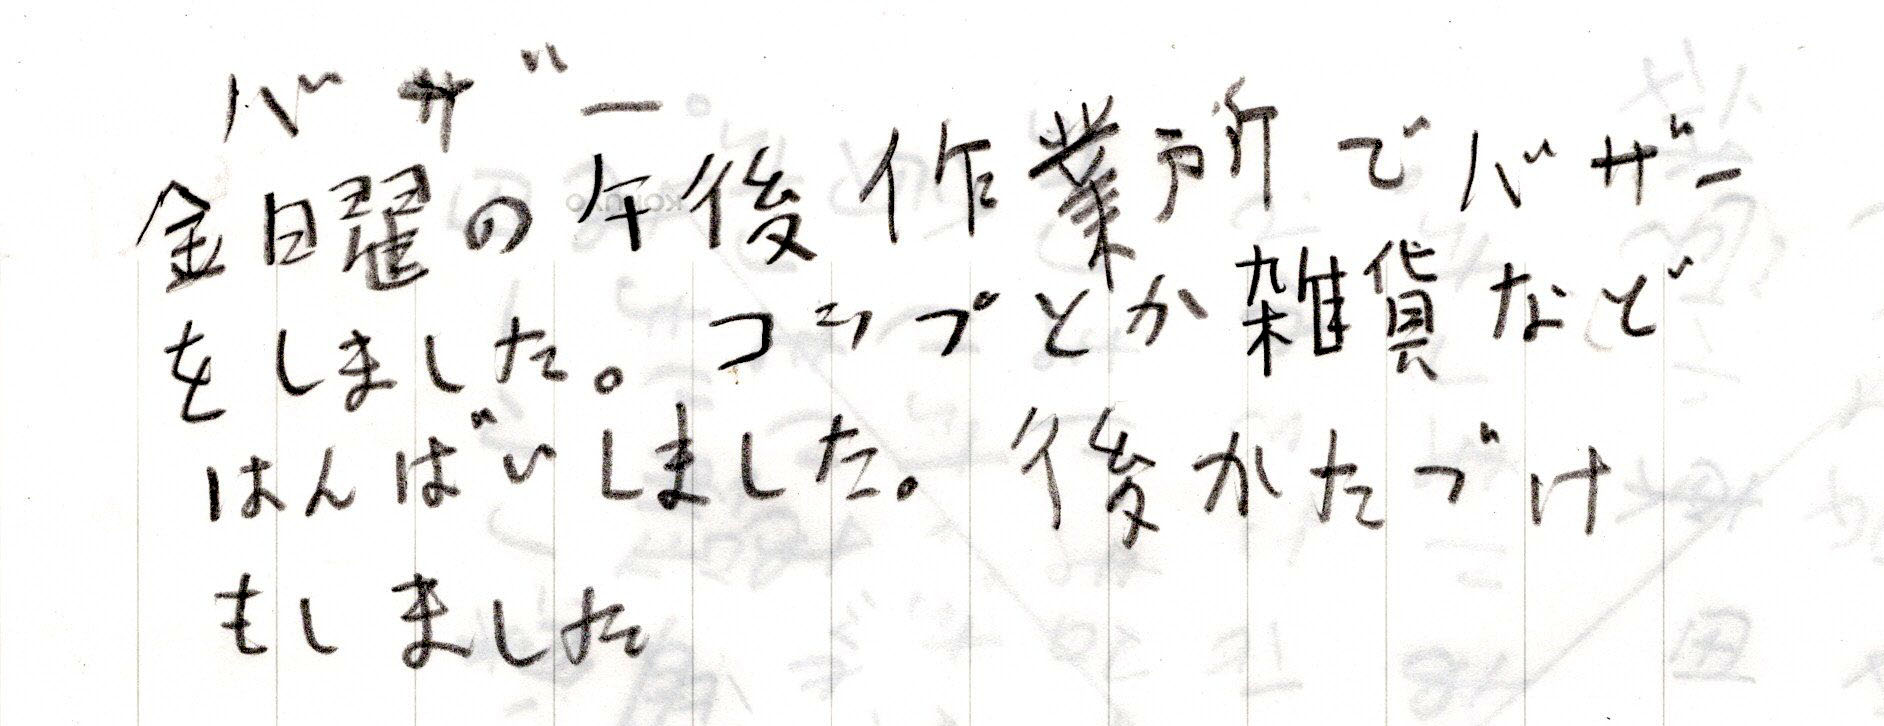 バザー
金曜の午後作業所でバザー
をしました。コップとか雑貨など
はんばいしました。後かたづけ
もしました